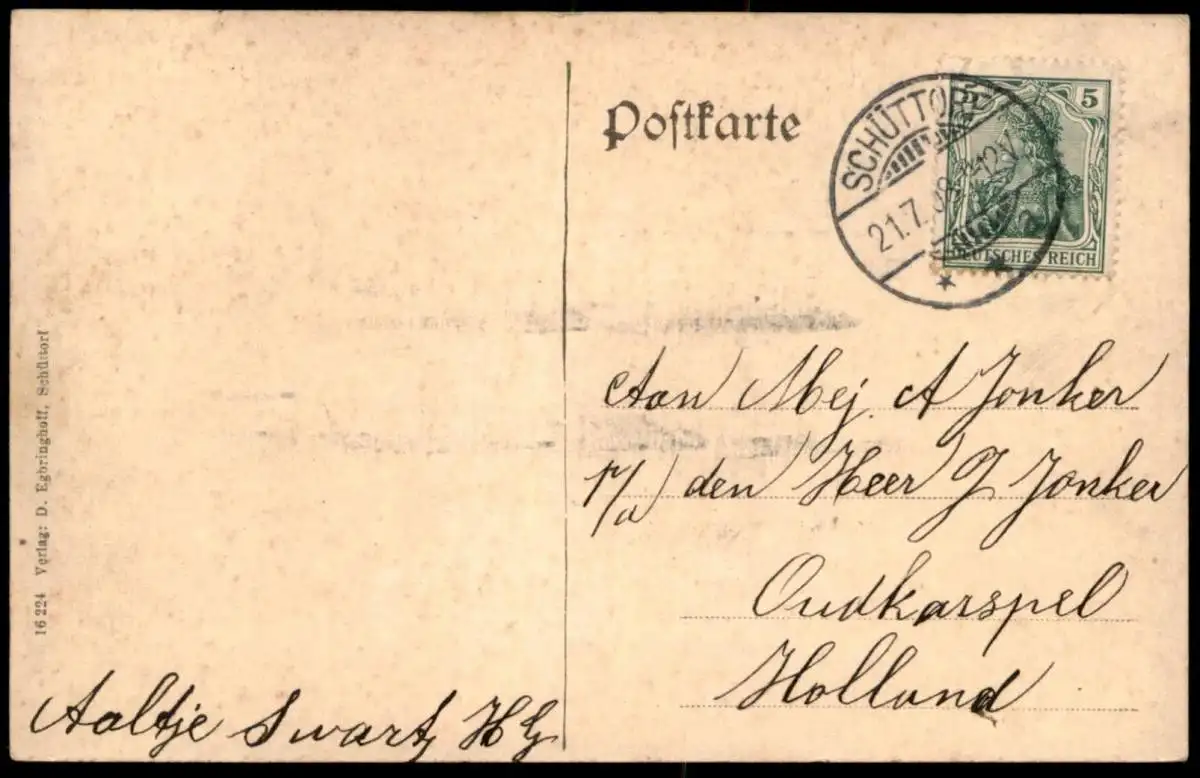 Postkarte
SCHÜTTORF
21.7.09
5
DEUTSCHES REICH
Aan Mej. A Jonker
p/a den Heer J Jonker
Oudkarspel
Holland
16 224 Verlag: D. Egbringhoff, Schüttorf
Aaltje Swart